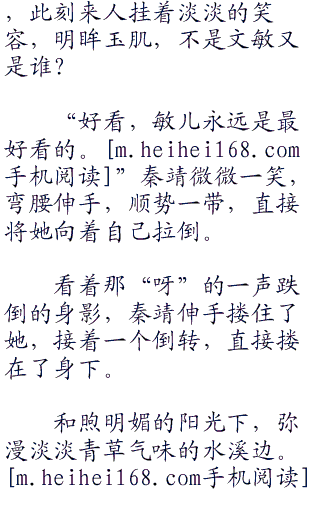 ，此刻来人挂着淡淡的笑
容，明眸玉肌，不是文敏又
是谁？
“好看，敏儿永远是最
好看的。[m.heihei168.com
手机阅读]”秦靖微微一笑，
弯腰伸手，顺势一带，直接
将她向着自己拉倒。
看着那“呀”的一声跌
倒的身影，秦靖伸手搂住了
她，接着一个倒转，直接搂
在了身下。
和煦明媚的阳光下，弥
漫淡淡青草气味的水溪边。
[m.heihei168.com手机阅读]